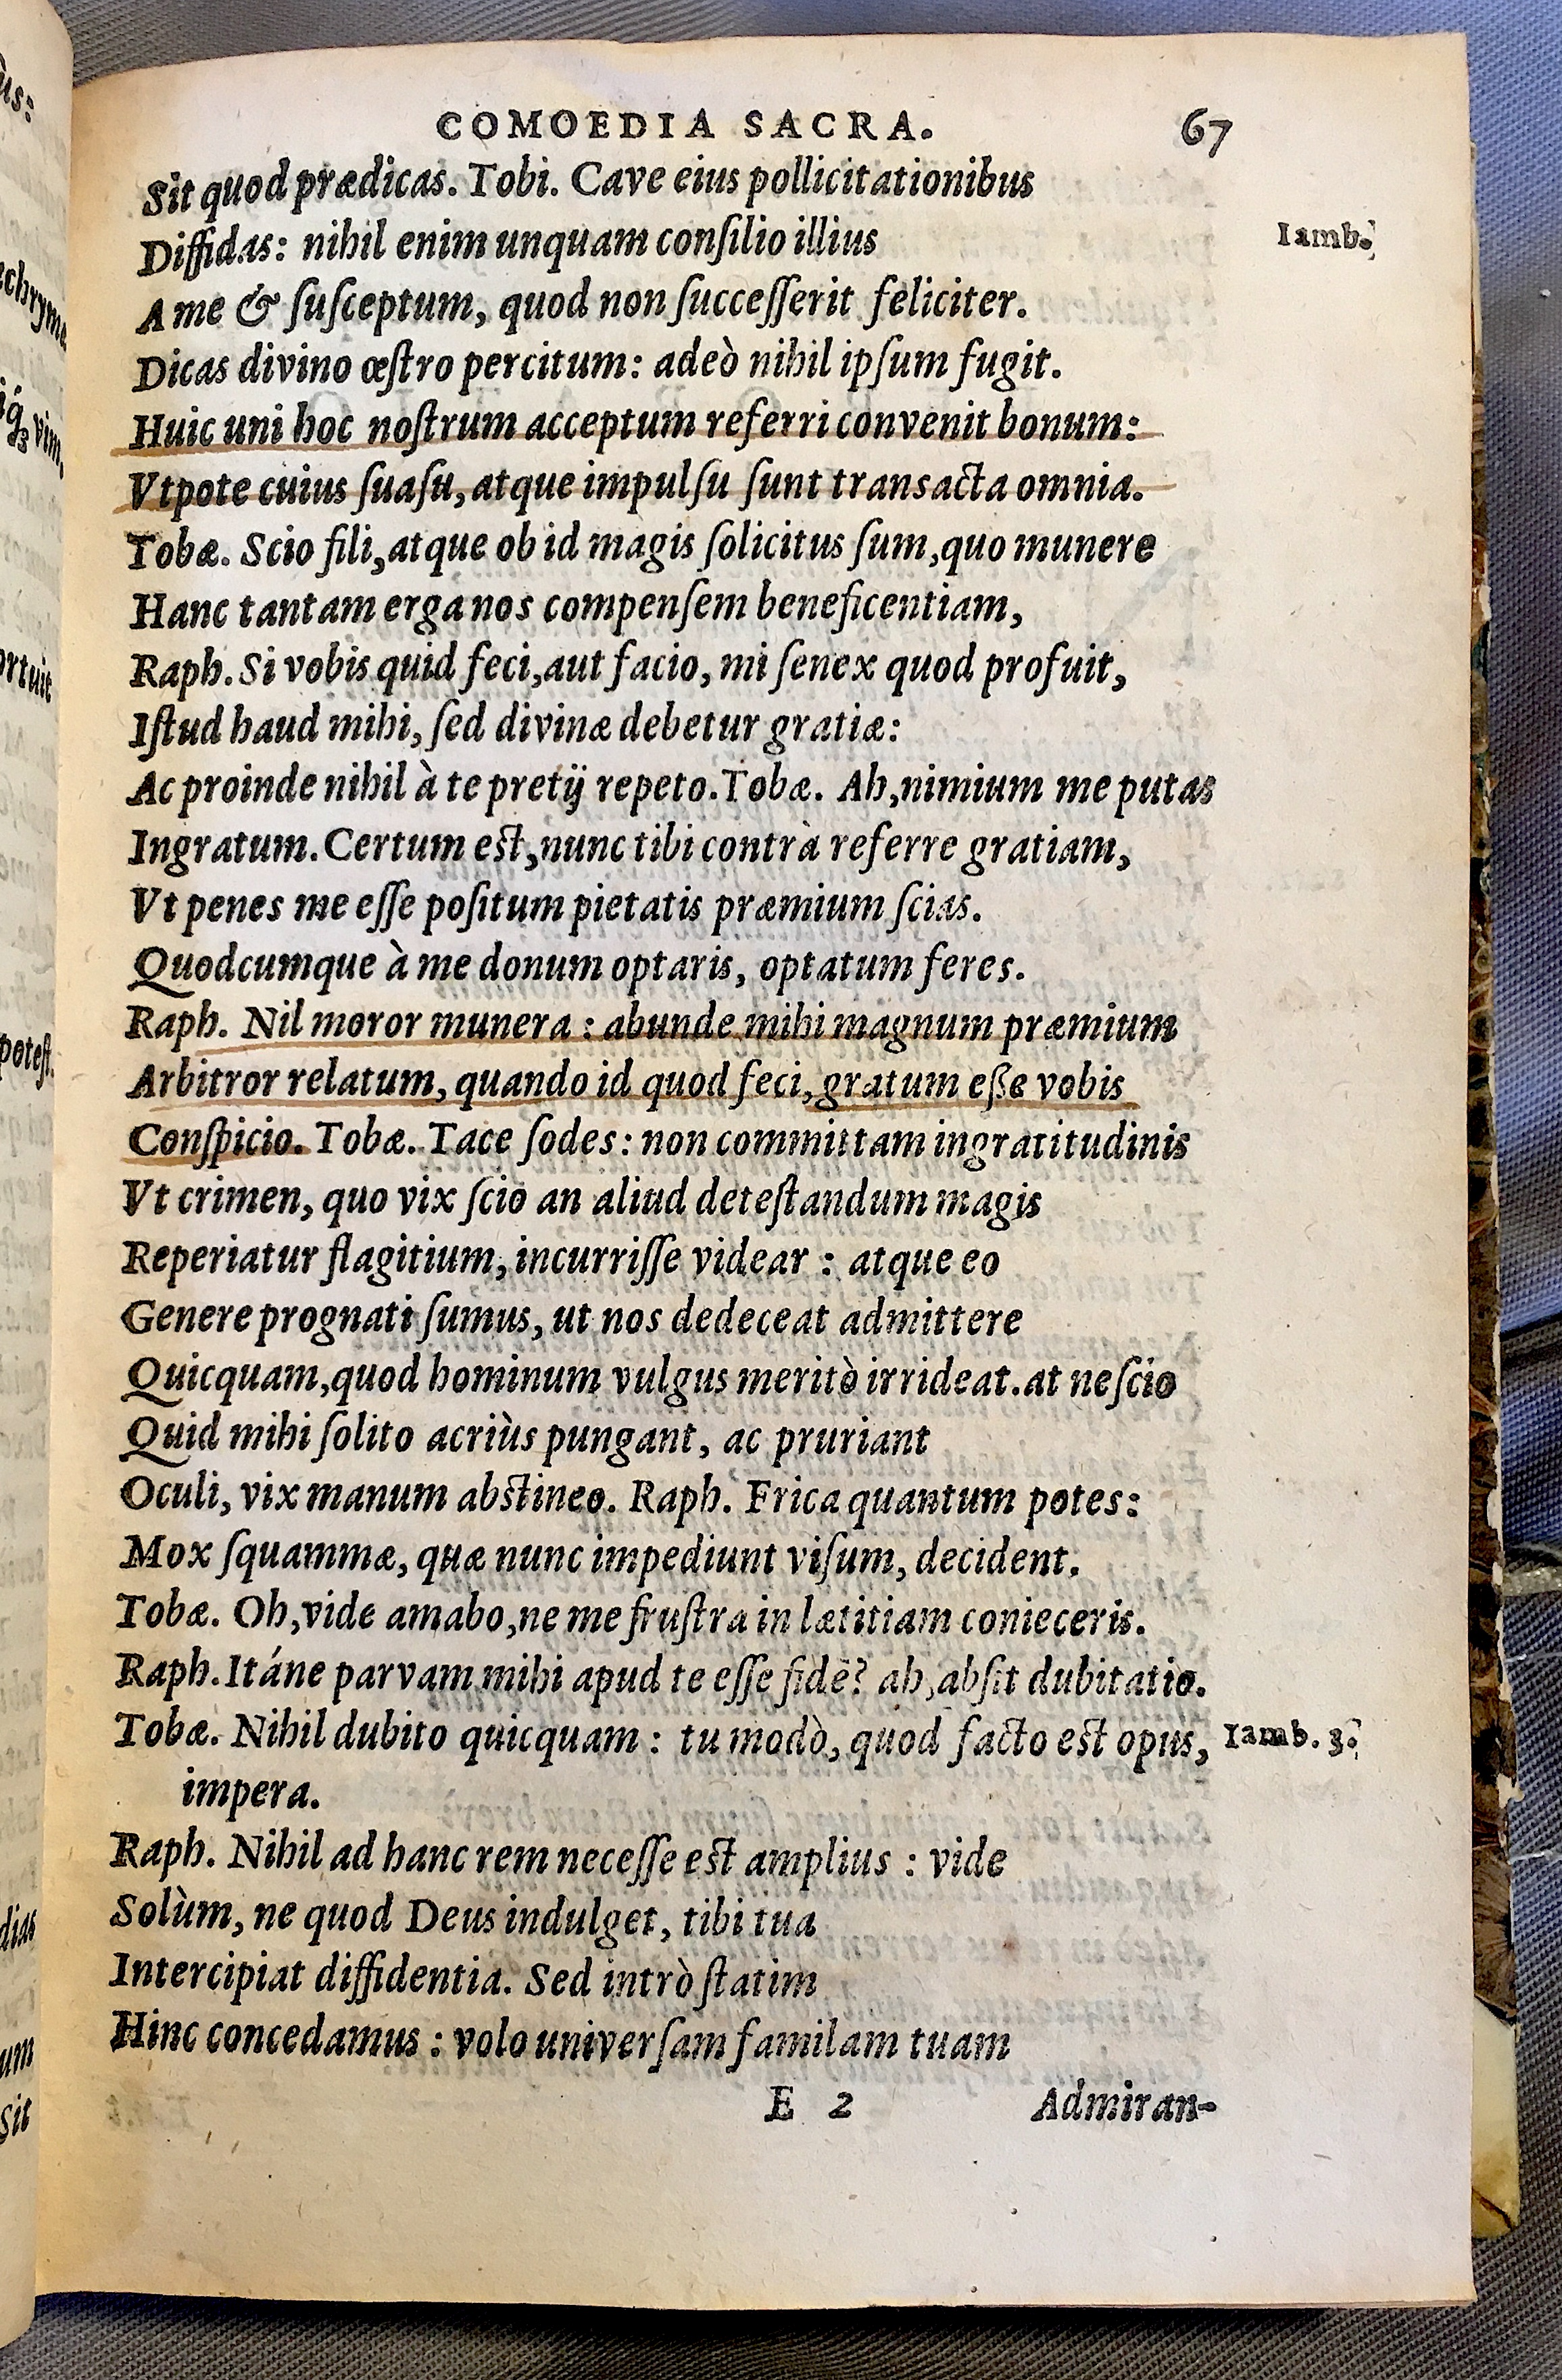 COMOEDIA SACRA. 67
Sit quod prædicas. Tobi. Cave eius pollicitationibus
Diffidas: nihil enim unquam conſilio illius Iamb.
A me & ſuſceptum, quod non ſucceſſerit feliciter.
Dicas divino œſtro percitum: adeò nihil ipſum fugit.
Huic uni hoc noſtrum acceptum referri convenit bonum:
Vtpote cuius ſuaſu, atque impulſu ſunt transacta omnia.
Tobæ. Scio fili, atque ob id magis ſolicitus ſum, quo munere
Hanc tantam erga nos compenſem beneficentiam,
Raph. Si vobis quid feci, aut facio, mi ſenex quod profuit,
Iſtud haud mihi, ſed divinæ debetur gratiæ:
Ac proinde nihil à te pretij repeto. Tobæ. Ah, nimium me putas
Ingratum. Certum eſt, nunc tibi contrà referre gratiam,
Vt penes me eſſe poſitum pietatis præmium ſcias.
Quodcumque à me donum optaris, optatum feres.
Raph. Nil moror munera : abunde mihi magnum præmium
Arbitror relatum, quando id quod feci, gratum eſſe vobis
Conſpicio. Tobæ. Tace ſodes: non committam ingratitudinis
Vt crimen, quo vix ſcio an aliud deteſtandum magis
Reperiatur flagitium, incurriſſe videar : atque eo
Genere prognati ſumus, ut nos dedeceat admittere
Quicquam, quod hominum vulgus meritò irrideat. at neſcio
Quid mihi ſolito acriùs pungant, ac pruriant
Oculi, vix manum abſtineo. Raph. Frica quantum potes:
Mox ſquammæ, quæ nunc impediunt viſum, decident.
Tobæ. Oh, vide amabo, ne me fruſtra in lætitiam conieceris.
Raph. Itáne parvam mihi apud te eſſe fidē? ah, abſit dubitatio.
Tobæ. Nihil dubito quicquam : tu modò, quod facto eſt opus, Iamb. 3.
impera.
Raph. Nihil ad hanc rem neceſſe eſt amplius : vide
Solùm, ne quod Deus indulget, tibi tua
Intercipiat diffidentia. Sed intrò ſtatim
Hinc concedamus : volo univerſam familam tuam
E 2 Admiran-